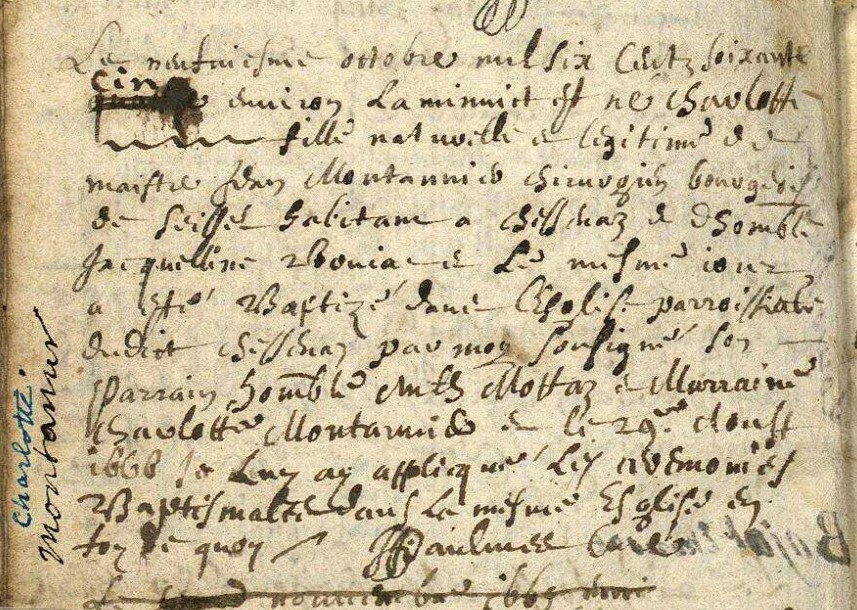 Le neufuiesme octobre mil six centz soixante
cinq
environ la minuict est ne Charlotte
fille naturelle e legitime de
maistre Jean Montannier chirurgien bourgeois
de Seissel habitant a Chessenaz e d honble
Jacquelline e le mesme iour
a esté Baptizé dans l'Esglise parroissiale
dudict Chessenaz par moy soubsigné son
parrain honble Mottaz e Marraine
Charlotte Montannier e le 29e d'oust
1666 Je luy ay applicqué les ceremonies
Baptismales dans la mesme Esglise en
foy de quoy Curé
novembre 1665
Charlotte.
Montanier